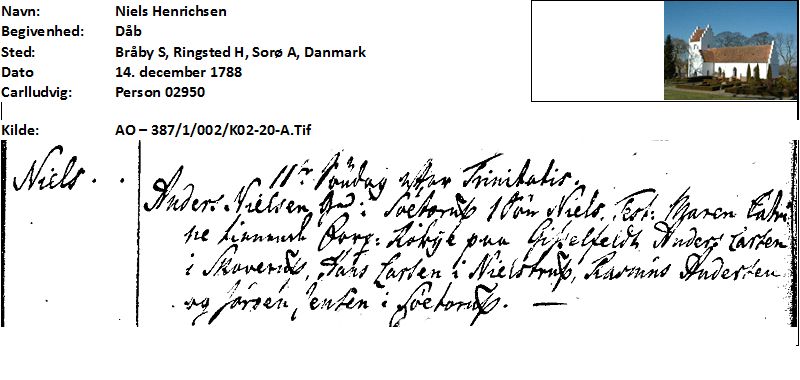 Navn: Niels Henrichsen
Begivenhed: Dåb
Sted: Bråby S, Ringsted H, Sorø A, Danmark
Dato 14. december 1788
Carlludvig: Person 02950
Kilde: AO – 387/1/002/K02-20-A.Tif
Niels.
11te Søndag efter Trinitatis.
Anders Nielsen i Søetorup 1 Søn Niels. Test: Maren Catri
ne paa Gisselfeldt, Anders Larsen
i Skoverup, Hans Larsen i Nielstrup, Rasmus Andersen
og Jørgen Jensen i Søetorup.